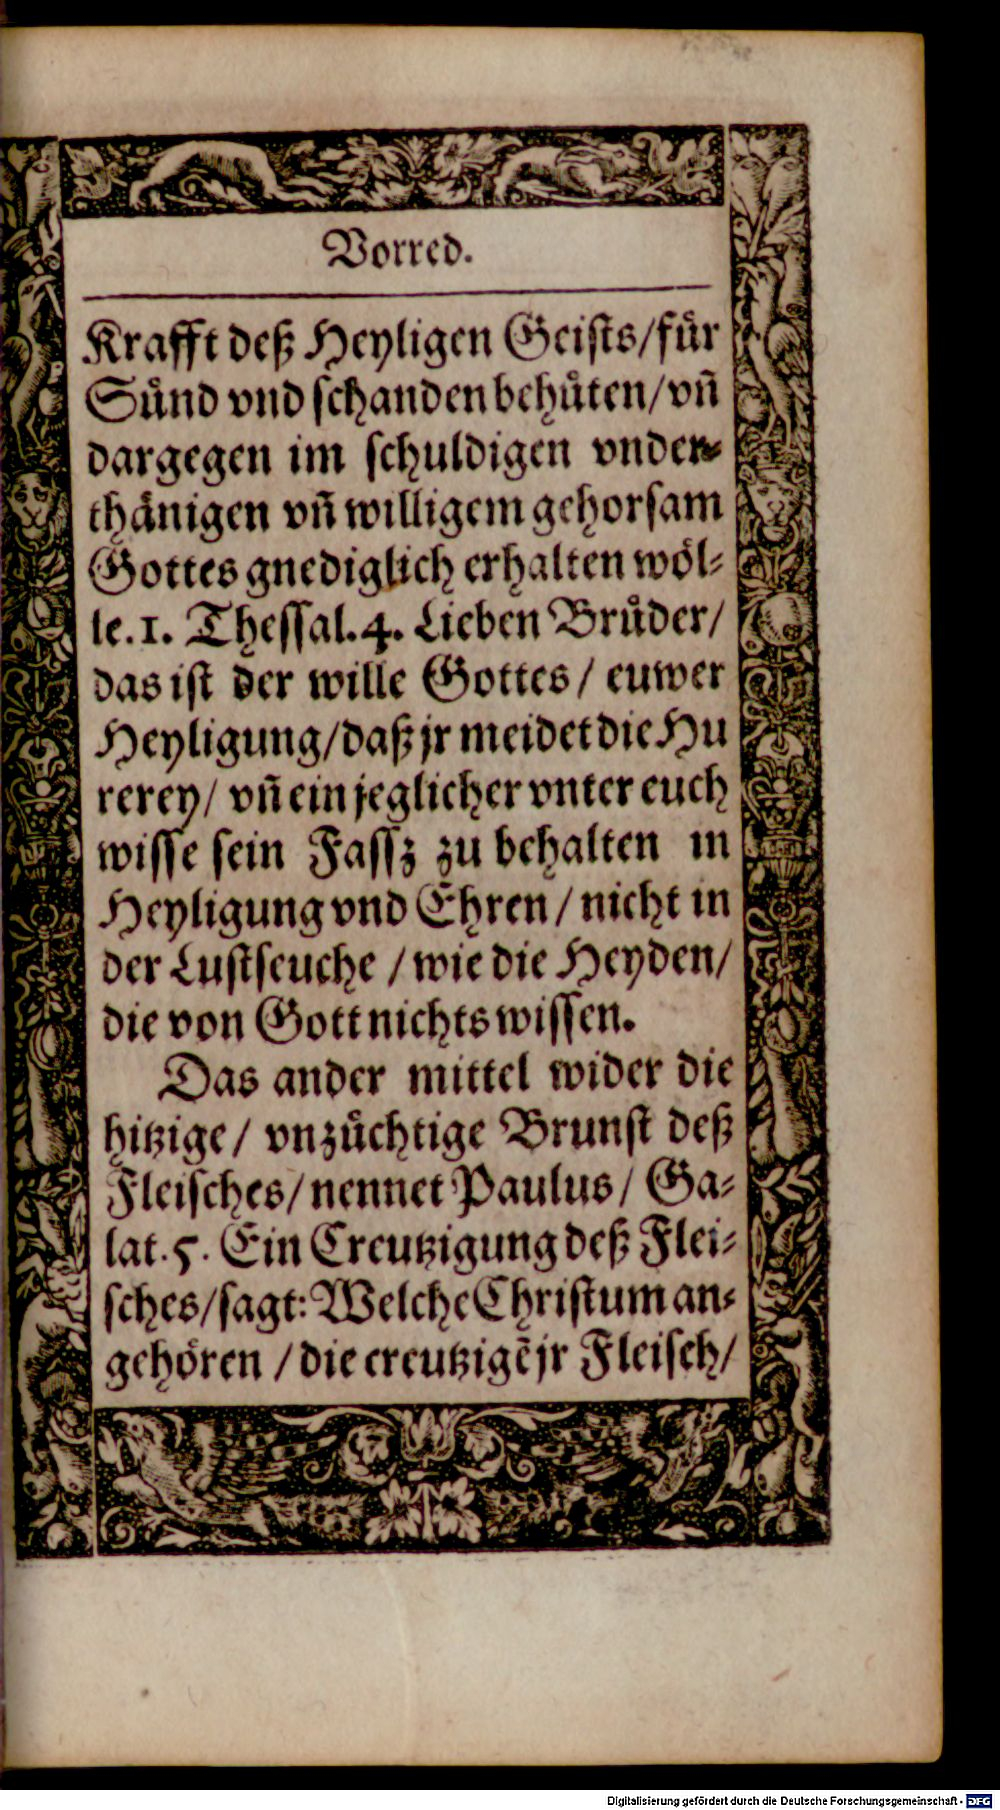 Vorred.
Krafft deß Heyligen Geiſts/für
Sünd vnd ſchanden behüten/vñ
dargegen im ſchuldigen vnder-
thänigen vñ willigem gehorſam
Gottes gnediglich erhalten wöl-
le. 1. Theſſal. 4. Lieben Brüder/
das iſt der wille Gottes / euwer
Heyligung/daß jr meidet die Hu
rerey/ vñ ein jeglicher vnter euch
wiſſe ſein Faſſz zu behalten in
Heyligung vnd Ehren / nicht in
der Luſtſeuche / wie die Heyden/
die von Gott nichts wiſſen.
Das ander mittel wider die
hitzige/ vnzüchtige Brunſt deß
Fleiſches/ nennet Paulus/ Ga-
lat. 5. Ein Creutzigung deß Flei-
ſches/ſagt: Welche Chriſtum an-
gehören / die creutzigẽ jr Fleiſch/
Digitalisierung gefördert durch die Deutsche Forschungsgemeinschaft - DFG